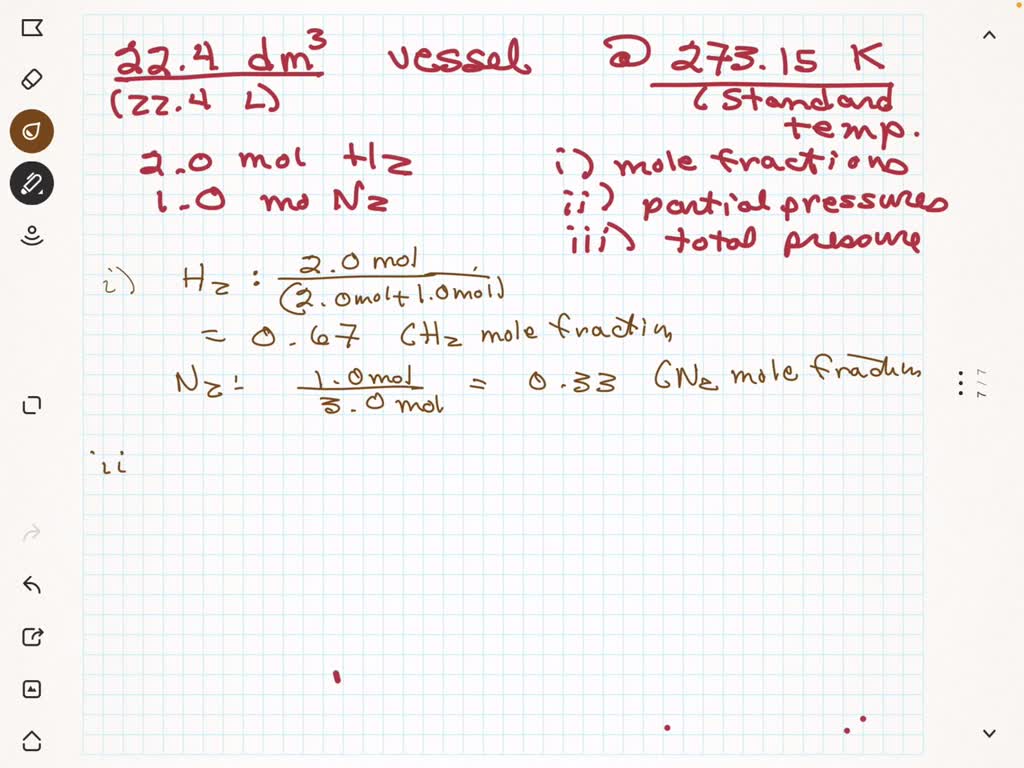 22.4 dm³ vessel @ 273.15 K
(22.4 L) (Standard temp.
2.0 mol H2 i) mole fractions
1.0 mo N2 ii) partial pressures
iii) total pressure
i) H2 : 2.0 mol / (2.0mol+1.0mol)
= 0.67 (H2 mole fraction
N2: 1.0 mol / 3.0 mol = 0.33 (N2 mole fraction
ii
7 / 7